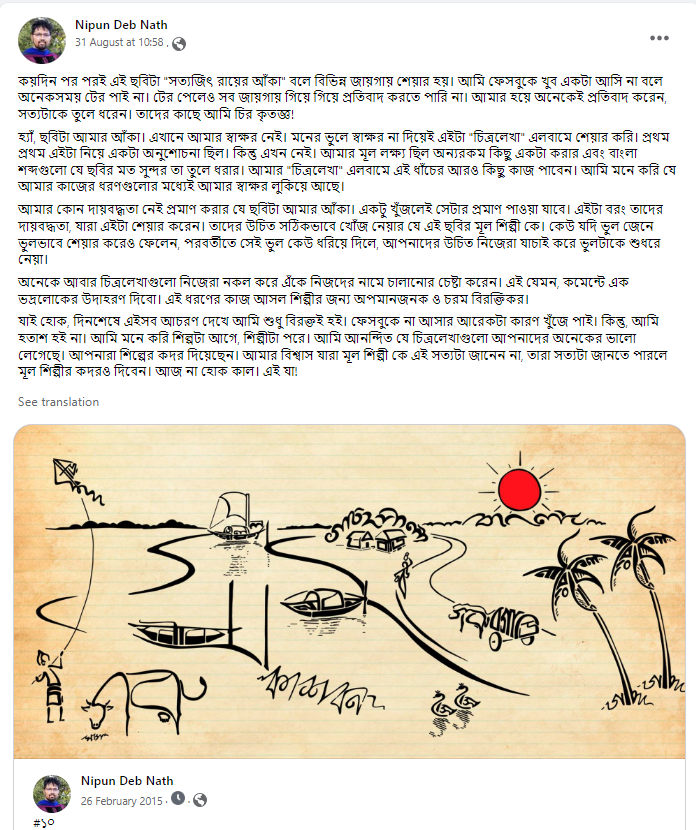 Nipun Deb Nath
31 August at 10:58 .
কয়দিন পর পরই এই ছবিটা "সত্যজিৎ রায়ের আঁকা" বলে বিভিন্ন জায়গায় শেয়ার হয়। আমি ফেসবুকে খুব একটা আসি না বলে
অনেকসময় টের পাই না। টের পেলেও সব জায়গায় গিয়ে গিয়ে প্রতিবাদ করতে পারি না। আমার হয়ে অনেকেই প্রতিবাদ করেন,
সত্যটাকে তুলে ধরেন। তাদের কাছে আমি চির কৃতজ্ঞ!
হ্যাঁ, ছবিটা আমার আঁকা। এখানে আমার স্বাক্ষর নেই। মনের ভুলে স্বাক্ষর না দিয়েই এইটা "চিত্রলেখা" এলবামে শেয়ার করি। প্রথম
প্রথম এইটা নিয়ে একটা অনুশোচনা ছিল। কিন্তু এখন নেই। আমার মূল লক্ষ্য ছিল অন্যরকম কিছু একটা করার এবং বাংলা
শব্দগুলো যে ছবির মত সুন্দর তা তুলে ধরার। আমার "চিত্রলেখা" এলবামে এই ধাঁচের আরও কিছু কাজ পাবেন। আমি মনে করি যে
আমার কাজের ধরণগুলোর মধ্যেই আমার স্বাক্ষর লুকিয়ে আছে।
আমার কোন দায়বদ্ধতা নেই প্রমাণ করার যে ছবিটা আমার আঁকা। একটু খুঁজলেই সেটার প্রমাণ পাওয়া যাবে। এইটা বরং তাদের
দায়বদ্ধতা, যারা এইটা শেয়ার করেন। তাদের উচিত সঠিকভাবে খোঁজ নেয়ার যে এই ছবির মূল শিল্পী কে। কেউ যদি ভুল জেনে
ভুলভাবে শেয়ার করেও ফেলেন, পরবর্তীতে সেই ভুল কেউ ধরিয়ে দিলে, আপনাদের উচিত নিজেরা যাচাই করে ভুলটাকে শুধরে
নেয়া।
অনেকে আবার চিত্রলেখাগুলো নিজেরা নকল করে এঁকে নিজদের নামে চালানোর চেষ্টা করেন। এই যেমন, কমেন্টে এক
ভদ্রলোকের উদাহরণ দিবো। এই ধরণের কাজ আসল শিল্পীর জন্য অপমানজনক ও চরম বিরক্তিকর।
যাই হোক, দিনশেষে এইসব আচরণ দেখে আমি শুধু বিরক্তই হই। ফেসবুকে না আসার আরেকটা কারণ খুঁজে পাই। কিন্তু, আমি
হতাশ হই না। আমি মনে করি শিল্পটা আগে, শিল্পীটা পরে। আমি আনন্দিত যে চিত্রলেখাগুলো আপনাদের অনেকের ভালো
লেগেছে। আপনারা শিল্পের কদর দিয়েছেন। আমার বিশ্বাস যারা মূল শিল্পী কে এই সত্যটা জানেন না, তারা সত্যটা জানতে পারলে
মূল শিল্পীর কদরও দিবেন। আজ না হোক কাল। এই যা!
See translation
Nipun Deb Nath
26 February 2015 ·
#১০